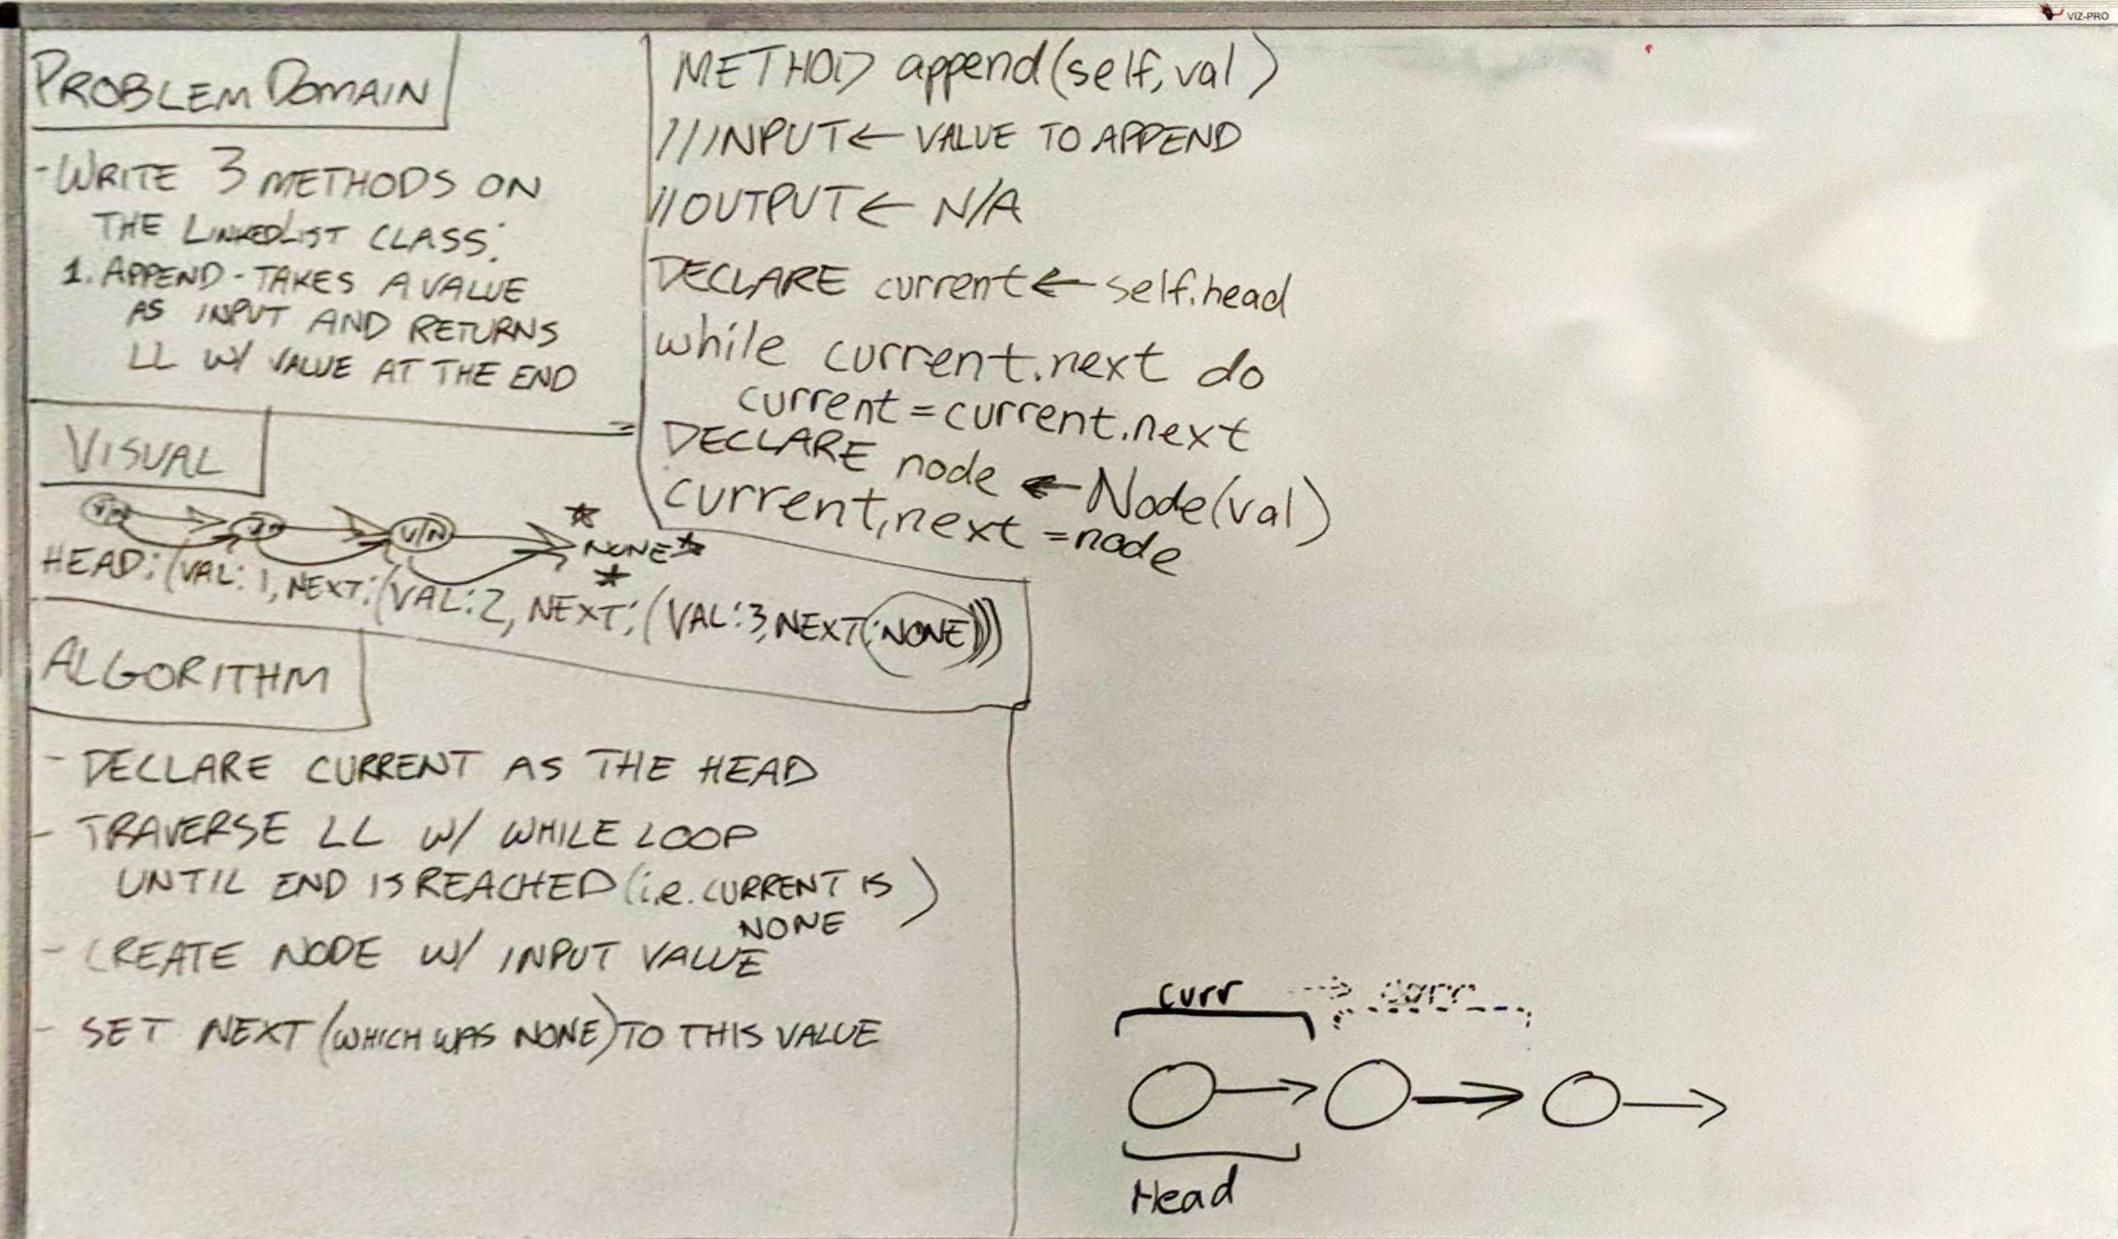 VIZ-PRO
PROBLEM DOMAIN
- WRITE 3 METHODS ON
THE LINKEDLIST CLASS:
1. APPEND - TAKES A VALUE
AS INPUT AND RETURNS
LL W/ VALUE AT THE END
VISUAL
V/N
NONE
HEAD: (VAL: 1, NEXT: (VAL: 2, NEXT: (VAL: 3, NEXT: NONE)))
ALGORITHM
- DECLARE CURRENT AS THE HEAD
- TRAVERSE LL W/ WHILE LOOP
UNTIL END IS REACHED (i.e. CURRENT IS
NONE)
- CREATE NODE W/ INPUT VALUE
- SET NEXT (WHICH WAS NONE) TO THIS VALUE
METHOD append(self, val)
// INPUT ← VALUE TO APPEND
// OUTPUT ← N/A
DECLARE current ← self.head
while current.next do
current = current.next
DECLARE node ← Node(val)
current.next = node
curr curr
Head